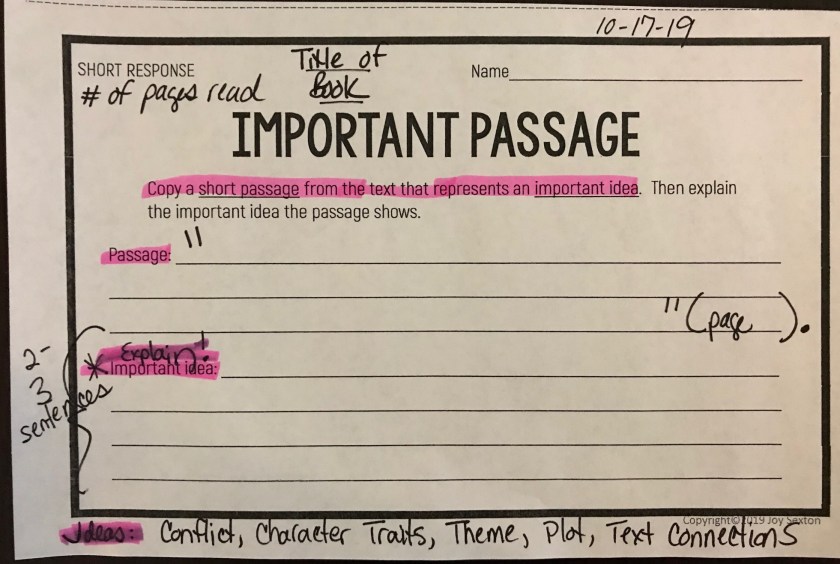 10-17-19
SHORT RESPONSE
Title of
Book
Name
# of pages read
IMPORTANT PASSAGE
Copy a short passage from the text that represents an important idea. Then explain
the important idea the passage shows.
Passage: "
" (page ).
2-
3
sentences
* Explain!
Important idea:
Copyright©2019 Joy Sexton
Ideas: Conflict, Character Traits, Theme, Plot, Text Connections